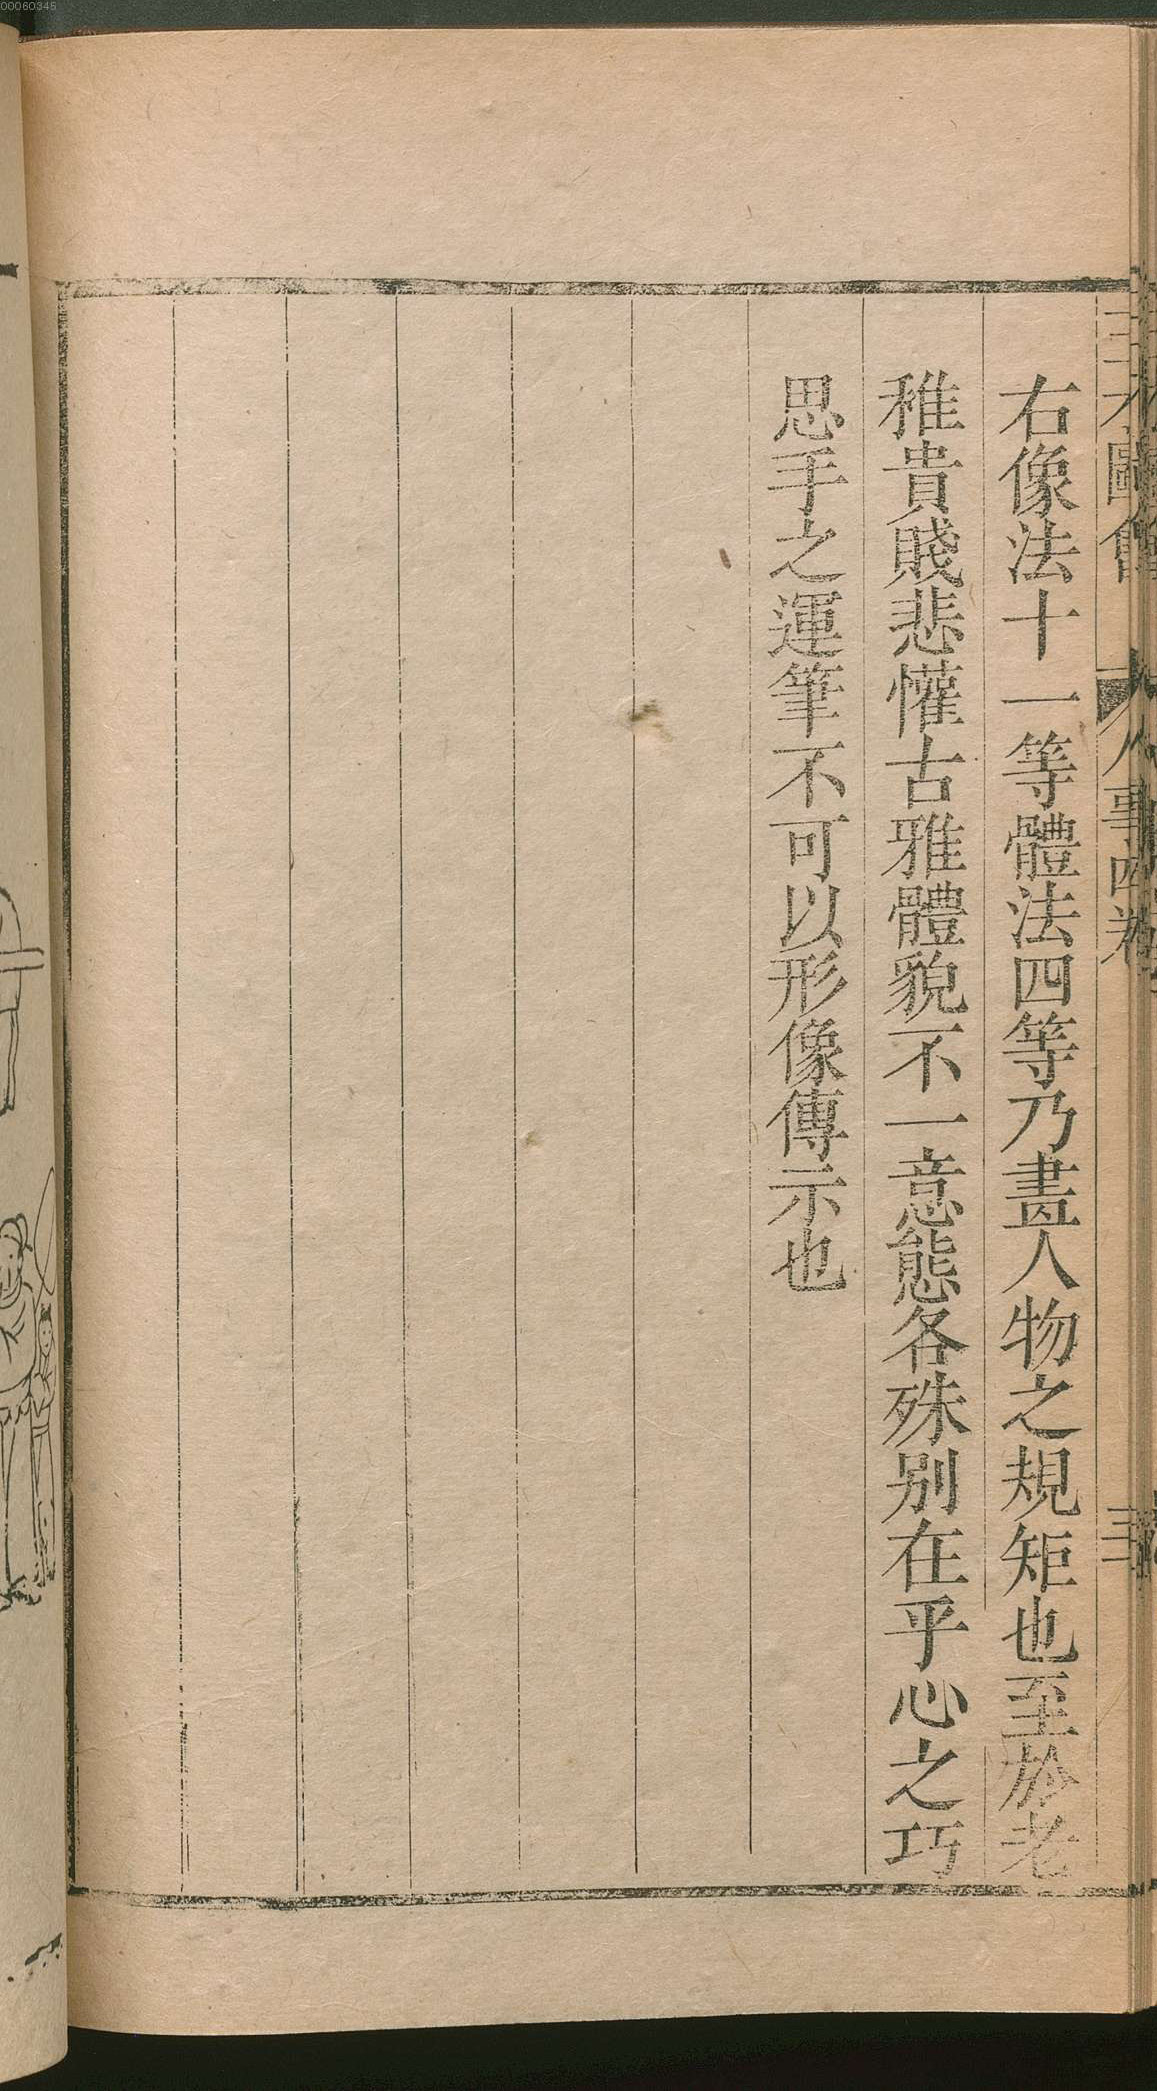 00060345
三才圖會
人事四卷
三
右像法十一等體法四等乃畫人物之規矩也至於老
稚貴賤悲懽古雅體貌不一意態各殊別在乎心之巧
思手之運筆不可以形像傳示也